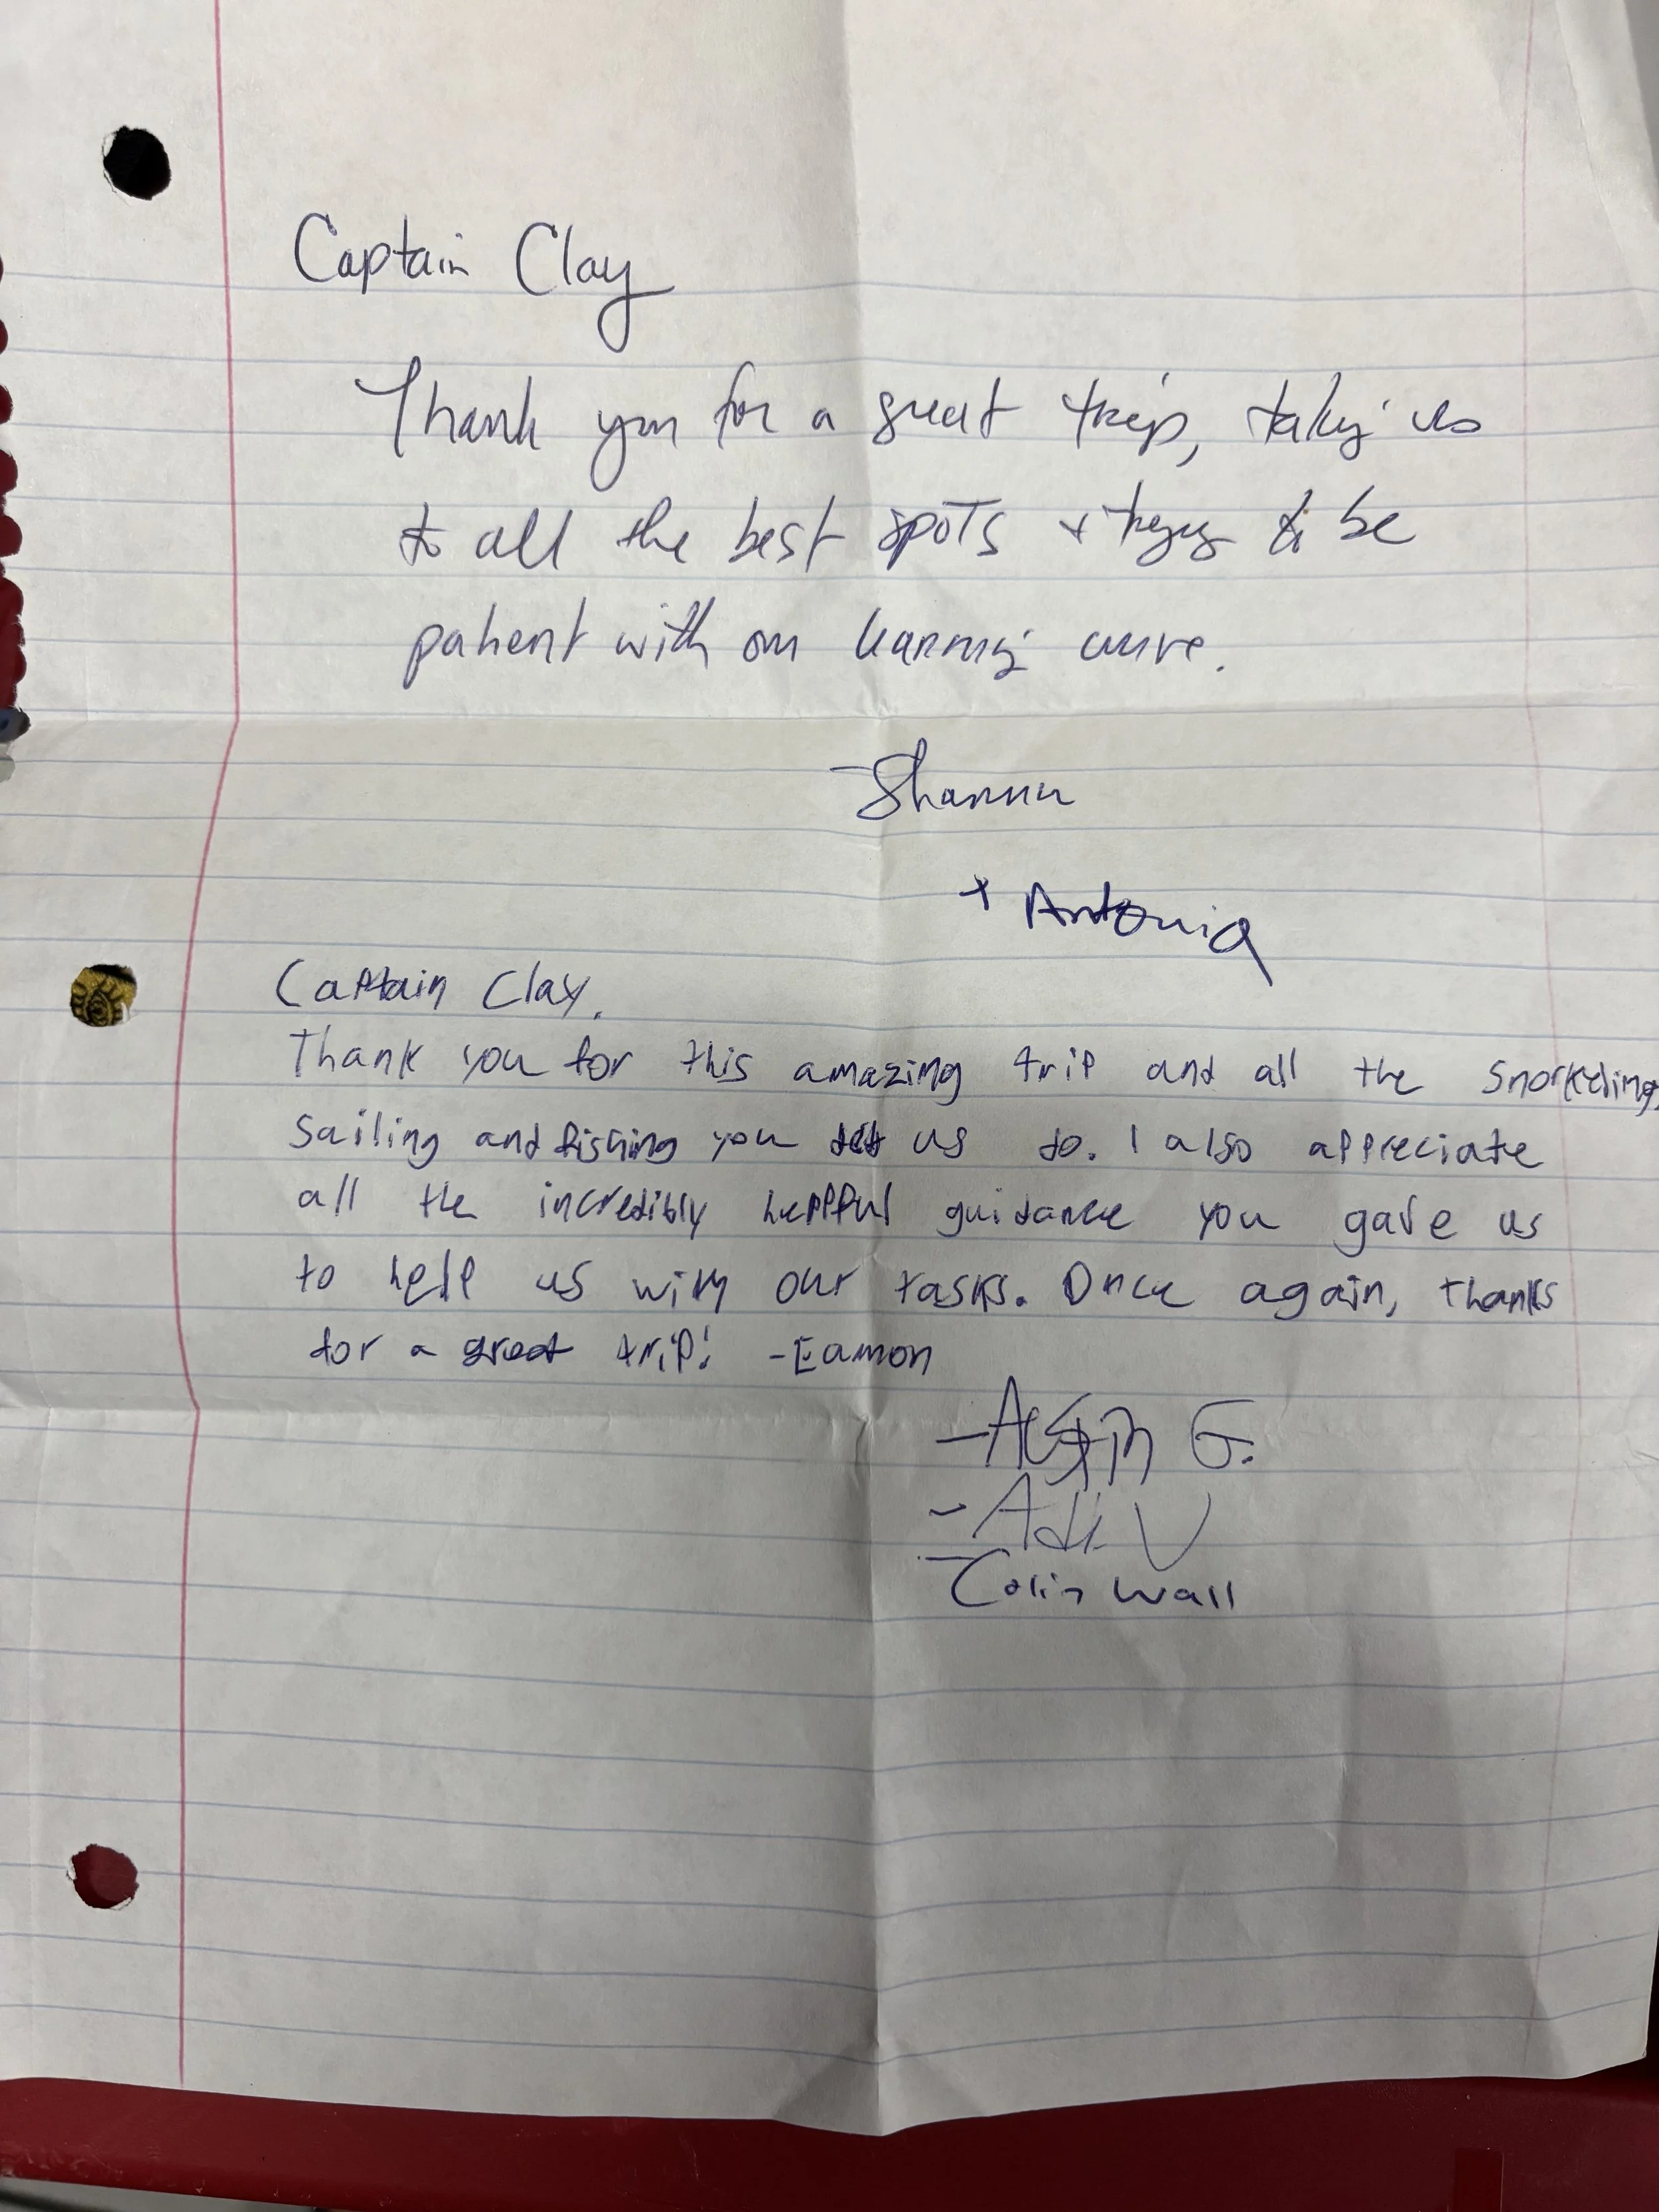 Captain Clay
Thank you for a great trip, taking us
to all the best spots + trying to be
patient with our learning curve.
- Shannon
+ Antonia
Captain Clay,
Thank you for this amazing trip and all the snorkeling,
sailing and fishing you let us do. I also appreciate
all the incredibly helpful guidance you gave us
to help us with our tasks. Once again, thanks
for a great trip! -Eamon
- Austin G.
- Adi V
- Colin Wall